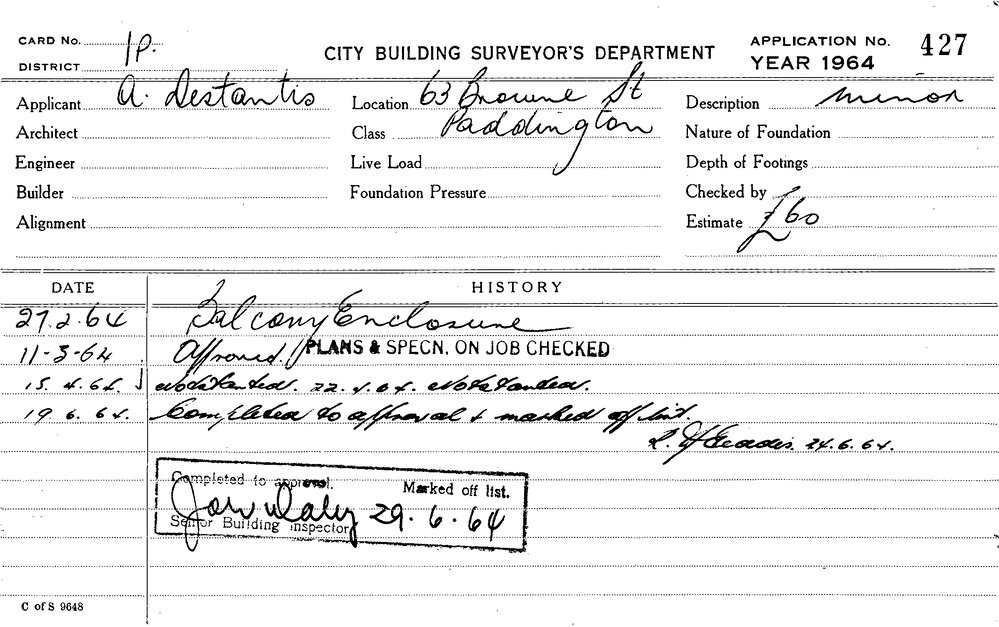 CARD No. 1P.
DISTRICT
CITY BUILDING SURVEYOR'S DEPARTMENT
APPLICATION No. 427
YEAR 1964
Applicant A. Destantis
Location 63 Browne St
Paddington
Description Minor
Architect
Class
Nature of Foundation
Engineer
Live Load
Depth of Footings
Builder
Foundation Pressure
Checked by
Alignment
Estimate £60
DATE HISTORY
27.2.64 Balcony Enclosure
11-3-64 Approved. PLANS & SPECN. ON JOB CHECKED
15.4.64. Not Started. 22.4.64. Not Started.
19.6.64. Completed to approval & marked off list.
24.6.64.
Completed to approval. Marked off list.
29.6.64
Senior Building Inspector
C of S 9648